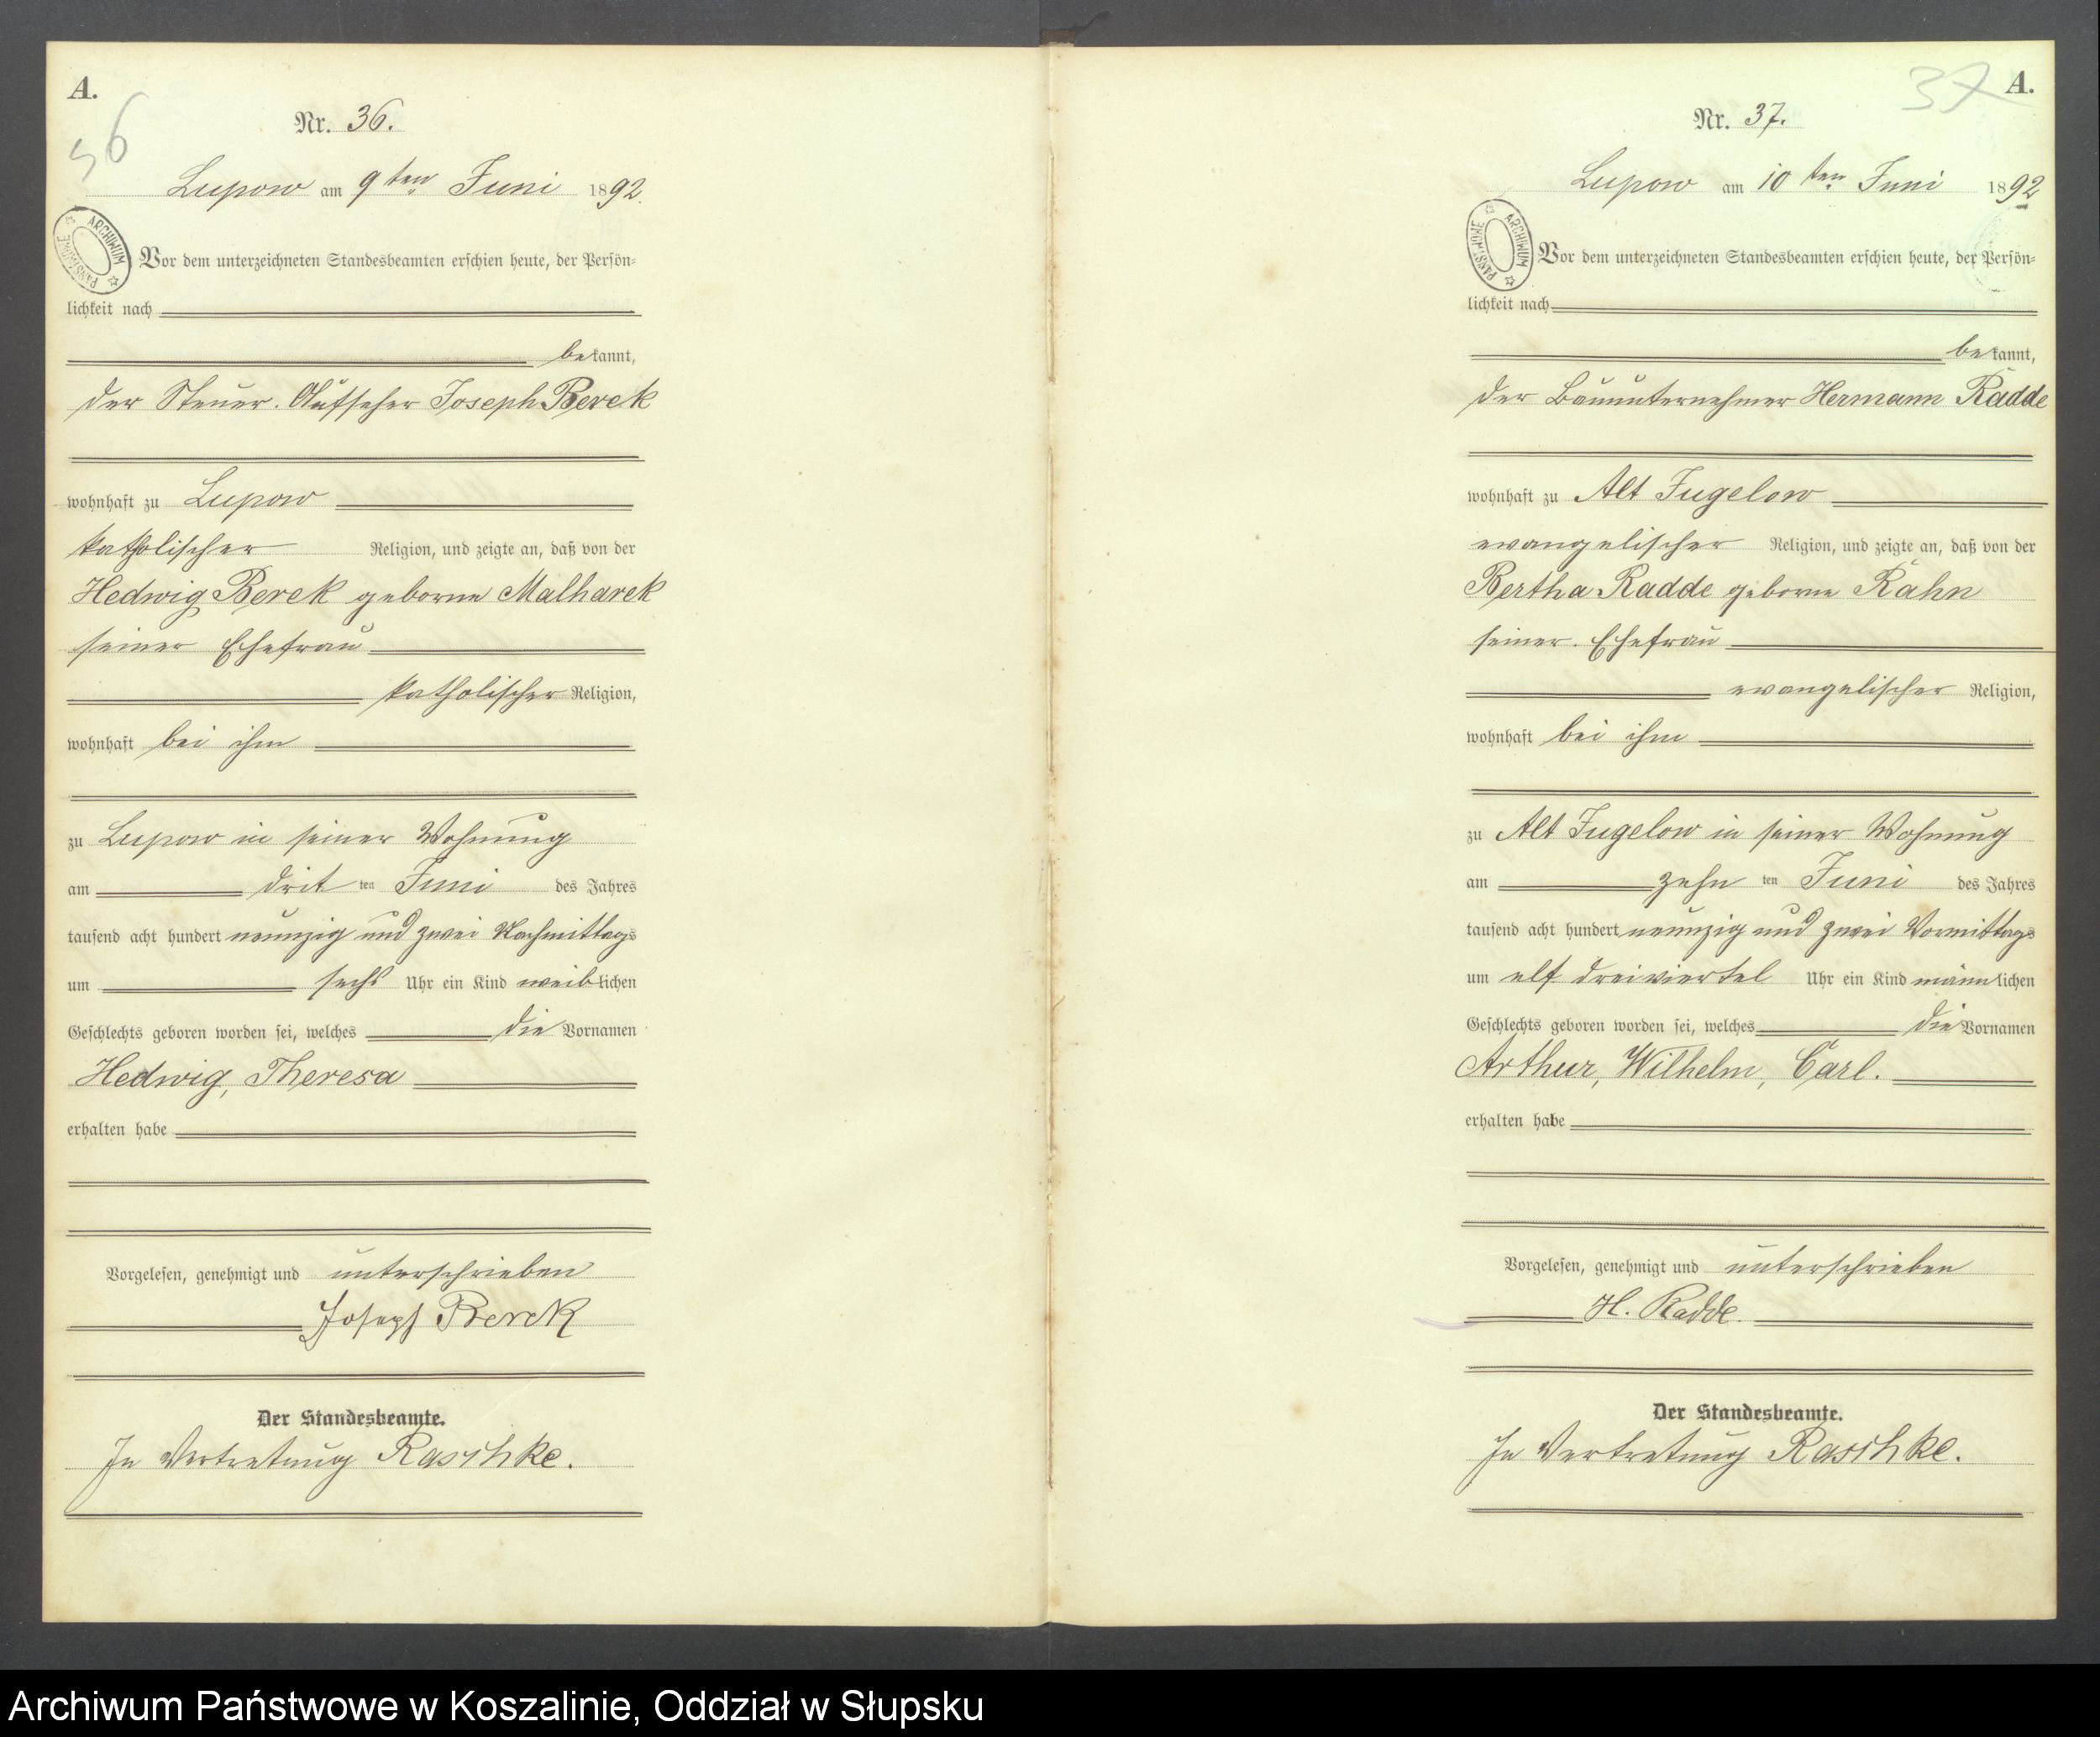 A.
36
Nr. 36.
Lupow am 9ten Juni 1892.
ARCHIWUM PAŃSTWOWE
Vor dem unterzeichneten Standesbeamten erschien heute, der Persön-
lichkeit nach
bekannt,
der Steuer-Aufseher Joseph Berek
wohnhaft zu Lupow
katholischer Religion, und zeigte an, daß von der
Hedwig Berek geborne Malharek
seiner Ehefrau
katholischer Religion,
wohnhaft bei ihm
zu Lupow in seiner Wohnung
am dritten Juni des Jahres
tausend acht hundert neunzig und zwei Nachmittags
um sechs Uhr ein Kind weiblichen
Geschlechts geboren worden sei, welches die Vornamen
Hedwig, Theresa
erhalten habe
Vorgelesen, genehmigt und unterschrieben
Joseph Berek
Der Standesbeamte.
In Vertretung Raschke.
37 A.
Nr. 37.
Lupow am 10ten Juni 1892
ARCHIWUM PAŃSTWOWE
Vor dem unterzeichneten Standesbeamten erschien heute, der Persön-
lichkeit nach
bekannt,
der Bauunternehmer Hermann Radde
wohnhaft zu Alt Jugelow
evangelischer Religion, und zeigte an, daß von der
Bertha Radde geborne Rahn
seiner Ehefrau
evangelischer Religion,
wohnhaft bei ihm
zu Alt Jugelow in seiner Wohnung
am zehnten Juni des Jahres
tausend acht hundert neunzig und zwei Vormittags
um elf dreiviertel Uhr ein Kind männlichen
Geschlechts geboren worden sei, welches die Vornamen
Arthur, Wilhelm, Carl.
erhalten habe
Vorgelesen, genehmigt und unterschrieben
H. Radde.
Der Standesbeamte.
In Vertretung Raschke.
Archiwum Państwowe w Koszalinie, Oddział w Słupsku